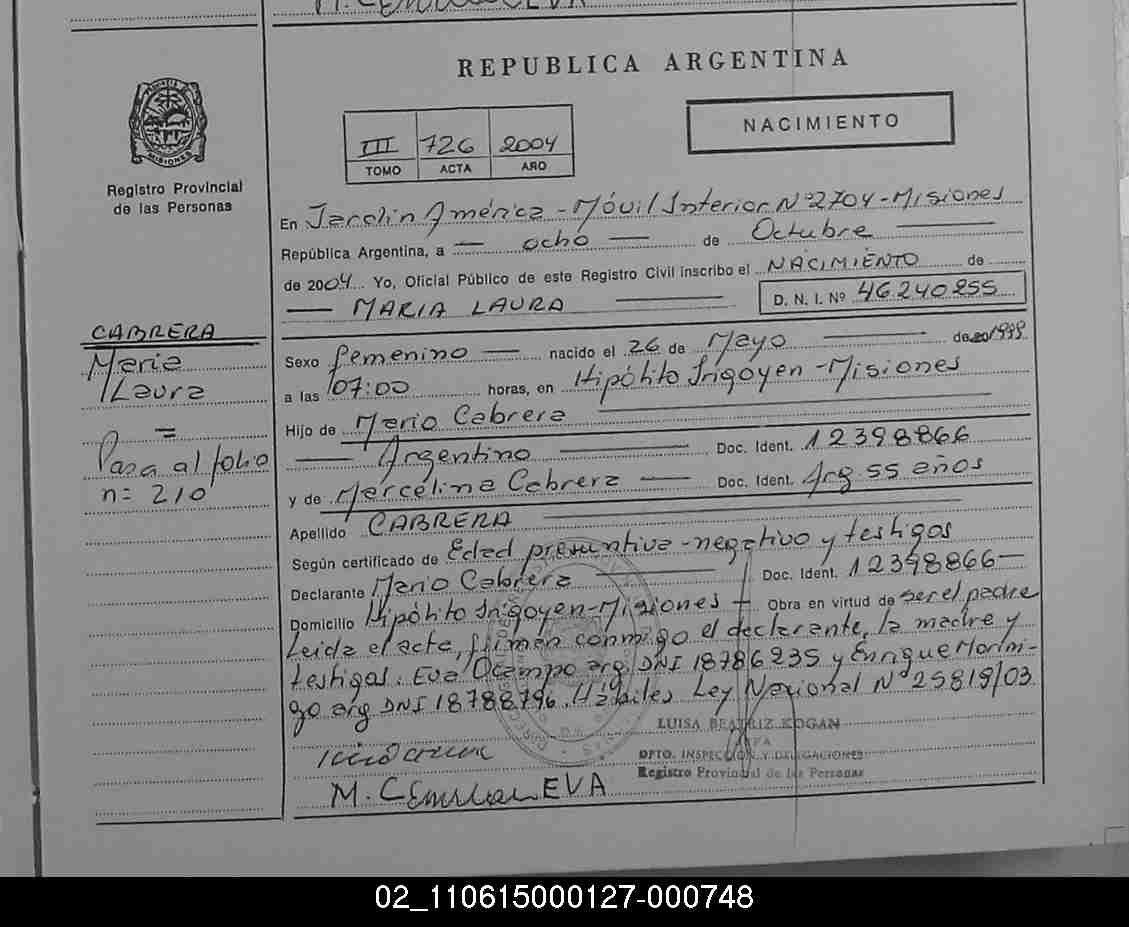 M. C EVA
REPUBLICA ARGENTINA
PROVINCIA DE
MISIONES
Registro Provincial
de las Personas
III 726 2004
TOMO ACTA AÑO
NACIMIENTO
En Jardín América - Móvil Interior Nº 2704 - Misiones
República Argentina, a — ocho — de Octubre —
de 2004 Yo, Oficial Público de este Registro Civil inscribo el NACIMIENTO de
— MARIA LAURA — D. N. I. Nº 46.240.255
CABRERA
Maria
Laura
=
Pasa al folio
n= 210
Sexo femenino — nacido el 26 de Mayo — de 20 1999
a las 07:00 horas, en Hipólito Irigoyen - Misiones
Hijo de Mario Cabrera
— Argentino — Doc. Ident. 12398866
y de Marcelina Cabrera — Doc. Ident. Arg 55 años
Apellido CABRERA
Según certificado de Edad presuntiva - negativo y testigos
Declarante Mario Cabrera — Doc. Ident. 12398866 —
Domicilio Hipólito Irigoyen - Misiones — Obra en virtud de ser el padre
Leida el acta, firman conmigo el declarante, la madre y
testigos. Eva Ocampo arg. DNI 18786235 y Enrique Morini-
go arg DNI 18788796. Hábiles Ley Nacional Nº 25819/03
LUISA BEATRIZ KOGAN
JEFA
DPTO. INSPECCION Y DELEGACIONES
Registro Provincial de las Personas
M. C EVA
02_110615000127-000748